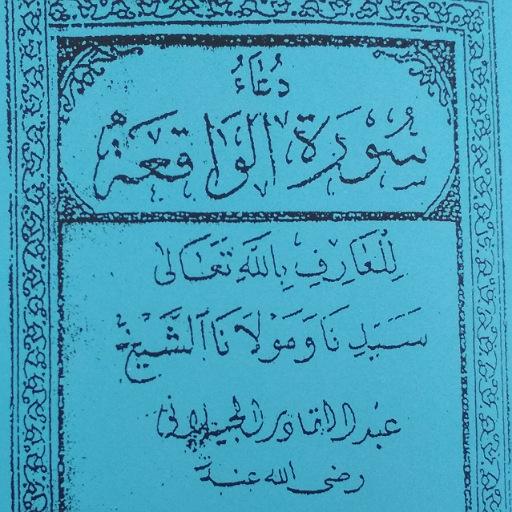 دُعَاءُ
سُوْرَةُ الْوَاقِعَةْ
لِلْعَارِفِ بِاللَّهِ تَعَالَى
سَيِّدِنَا وَمَوْلَانَا الشَّيْخْ
عبد القادر الجيلاني
رضى الله عنه